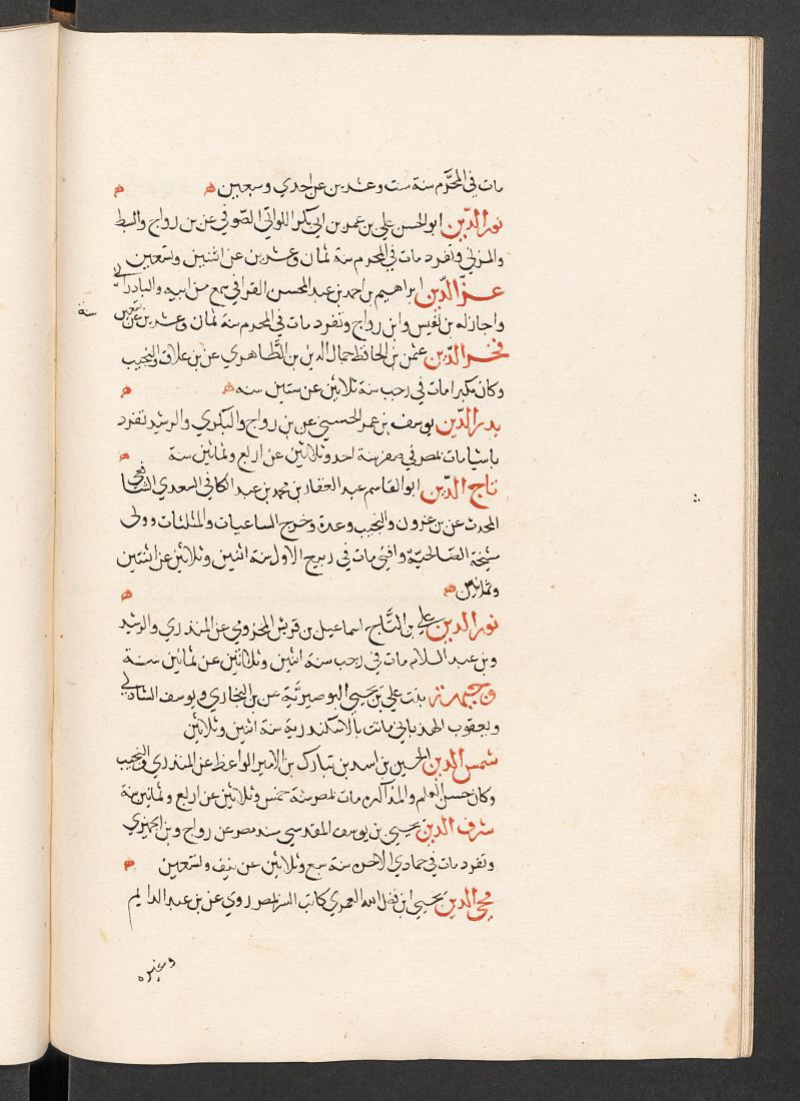 مات في المحرم سنة ست وعشرين عن احدي وسبعين ه ه
نور الدين ابو الحسن علي بن عمر بن ابي بكر اللواتي الصوفي عن بن رواج والسبط
والمزني وتفرد مات في المحرم سنة ثمان وعشرين عن اثنين وتسعين
عز الدين ابراهيم بن احمد بن عبد المحسن القرافي سمع من ابيه والبادرائي
واجاز له بن نفيس وابن رواج وتفرد مات في المحرم سنة ثمان وعشرين عن تسعين سنة
فخر الدين عثمن بن الحافظ جمال الدين بن الظاهري عن بن علاق والنجيب
وكان مكبرا مات في رجب سنة ثلاثين عن ستين سنه ه ه
بدر الدين يوسف بن عمر الحسيني عن بن رواج والبكري والرشيد تفرد
باشيا مات بمصر في صفر سنة احد وثلاثين عن اربع وثمانين سنة ه
تاج الدين ابو القاسم عبد الغفار بن محمد بن عبد الكافي السعدي الشافعي
المحدث عن بن عزون والنجيب وعدة وخرج التساعيات والمثلثات وولى
مشيخة الصالحية وافتي مات في ربيع الاول سنة اثنين وثلاثين عن اثنتين
وثمانين ه ه
نور الدين علي بن التاج اسماعيل بن قريش المخزومي عن المنذري والرشيد
وبن عبد السلام مات في رجب سنة اثنين وثلاثين عن ثمانين سنة
وجيهة بنت علي بن يحيي البوصيرية عن بن البخاري ويوسف الشاذلي
ويعقوب الهذباني ماتت بالاسكندرية سنة اثنين وثلاثين
شمس الدين الحسين بن اسد بن تبارك بن الامير الواعظ عن المنذري والنجيب
وكان حسن العلم والمذاكره مات بمصر سنة خمس وثلاثين عن اربع وثمانين سنة
شرف الدين يحيي بن يوسف المقدسي سند مصر عن رواج وبن الجميزي
وتفرد مات في جمادي الاخره سنة سبع وثلاثين عن نيف وتسعين ه
محي الدين يحيي ابن فضل الله العمري كاتب السر بمصر روي عن بن عبد الدايم
وغيره